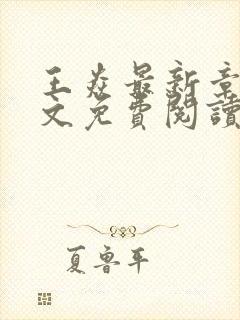 王焱最新章
文免費閱讀
夏魯平